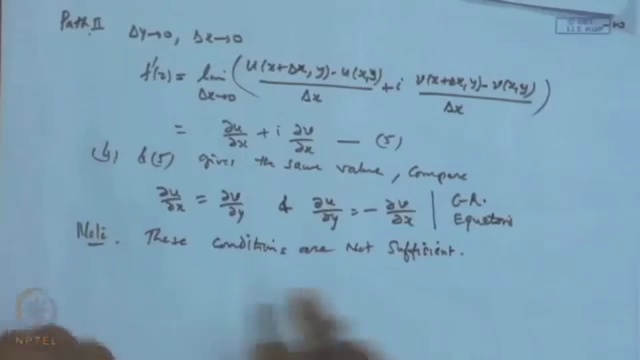 Path II Δy→0, Δx→0
f'(z) = lim Δx→0 ( (u(x+Δx, y) - u(x,y))/Δx + i (v(x+Δx, y) - v(x,y))/Δx )
= ∂u/∂x + i ∂v/∂x — (5)
(4) & (5) gives the same value, Compare
∂u/∂x = ∂v/∂y & ∂u/∂y = - ∂v/∂x | C-R. Equations
Note: These Conditions are Not Sufficient.
NPTEL